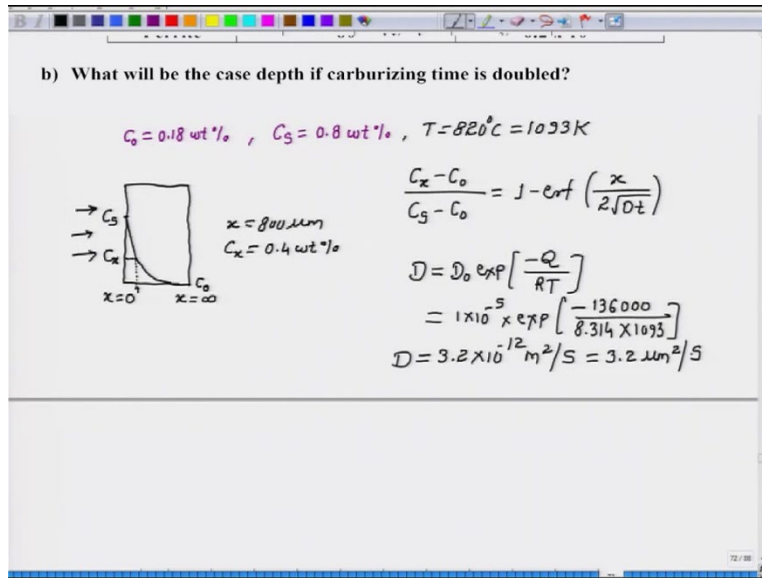 B I
b) What will be the case depth if carburizing time is doubled?
C₀ = 0.18 wt%, C_S = 0.8 wt%, T = 820°C = 1093K
(C_x − C₀)/(C_S − C₀) = 1 − erf (x/(2√Dt))
C_S
C_x
C₀
x=0
x=∞
x = 800 μm
C_x = 0.4 wt%
D = D₀ exp[−Q/RT]
= 1×10⁻⁵ × exp[−136000/(8.314×1093)]
D = 3.2×10⁻¹² m²/S = 3.2 μm²/S
72 / 88